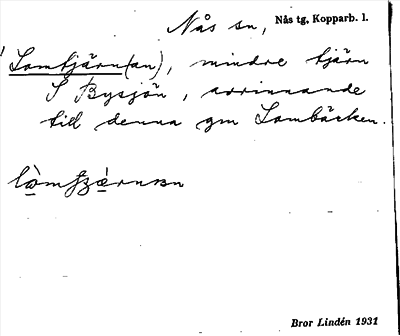 Nås sn, Nås tg, Kopparb. l.
Lomtjärn(an), mindre tjärn
S Bysjön, avrinnande
till denna gm Lombäcken.
Bror Lindén 1931